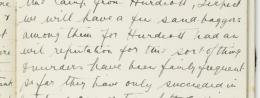 the camp from Hurdcott, I expect
we will have a few sand baggers
among them for Hurdcott had an
evil reputation for this sort of thing
& murders have been fairly frequent
so far they have only succeeded in